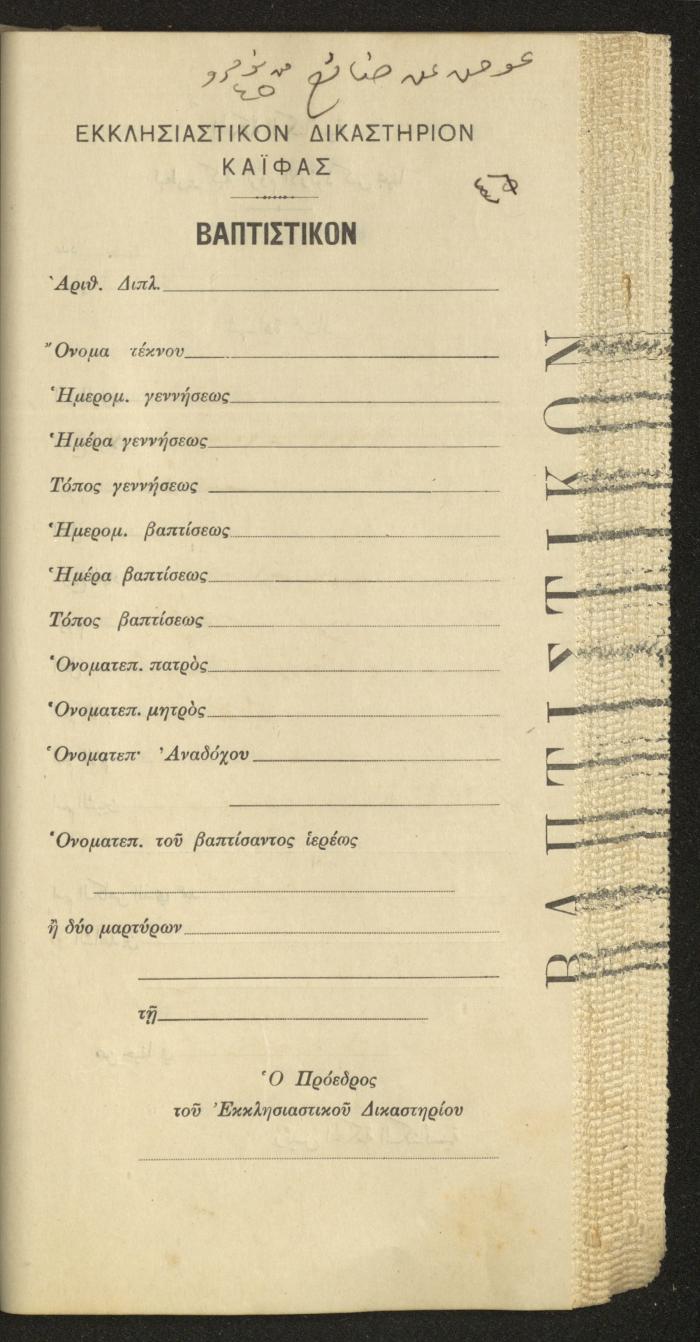 عوض عن ضائع من
ΕΚΚΛΗΣΙΑΣΤΙΚΟΝ ΔΙΚΑΣΤΗΡΙΟΝ
ΚΑΪΦΑΣ
ΒΑΠΤΙΣΤΙΚΟΝ
Ἀριθ. Διπλ.
Ὄνομα τέκνου
Ἡμερομ. γεννήσεως
Ἡμέρα γεννήσεως
Τόπος γεννήσεως
Ἡμερομ. βαπτίσεως
Ἡμέρα βαπτίσεως
Τόπος βαπτίσεως
Ὀνοματεπ. πατρὸς
Ὀνοματεπ. μητρὸς
Ὀνοματεπ· Ἀναδόχου
Ὀνοματεπ. τοῦ βαπτίσαντος ἱερέως
ἢ δύο μαρτύρων
τῇ
Ὁ Πρόεδρος
τοῦ Ἐκκλησιαστικοῦ Δικαστηρίου
ΒΑΠΤΙΣΤΙΚΟΝ